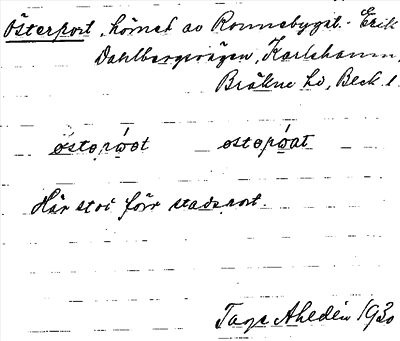 Österport, hörnet av Ronnebygat.- Erik
Dahlbergsvägen, Karlshamn,
Bräkne hd, Blek. l.
östepo̊t ostepo̊at
Här stod förr stadsport.
Tage Ahldén 1930